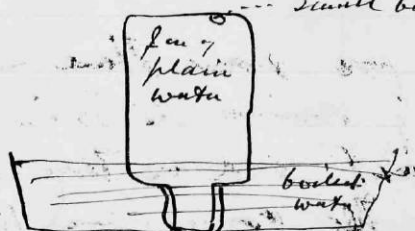 small b
Jar of
plain
water
boiled
water